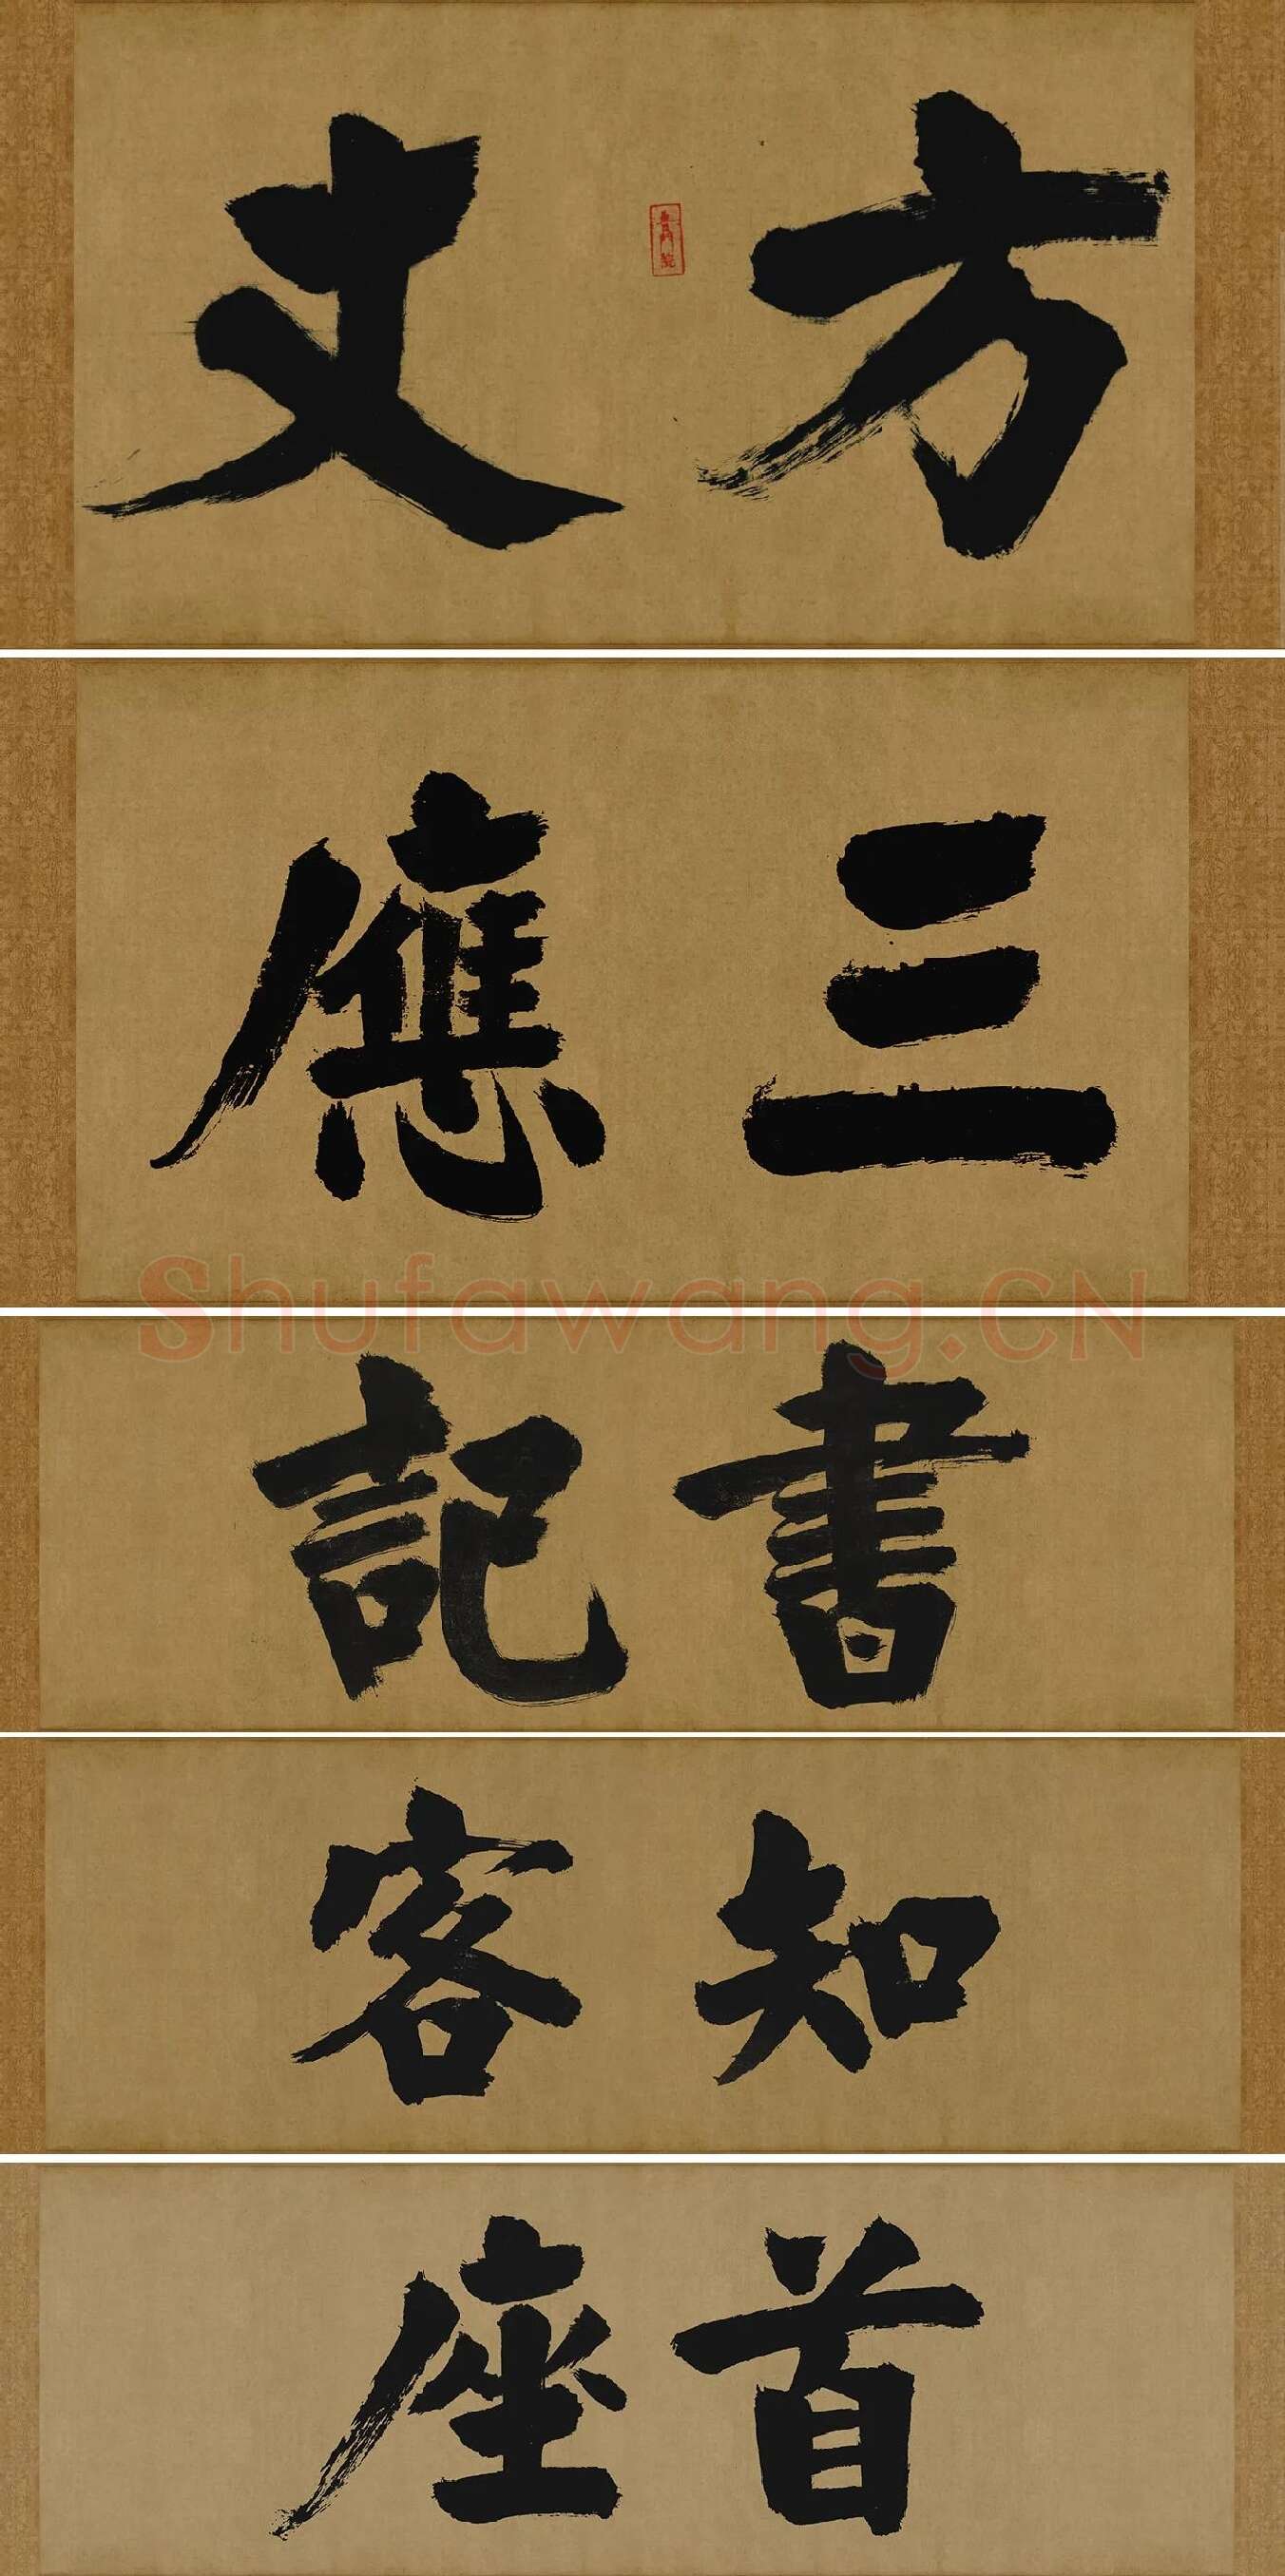 方丈
三應
Shufawang.CN
書記
知客
首座